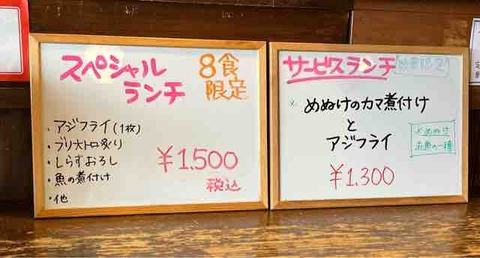 スペシャル
ランチ
8食
限定
・アジフライ(1枚)
・ブリ大トロ炙り
・しらすおろし
・魚の煮付け
・他
¥1,500
税込
サービスランチ
めぬけのカマ煮付け
と
アジフライ
※めぬけ
赤魚の一種
¥1,300